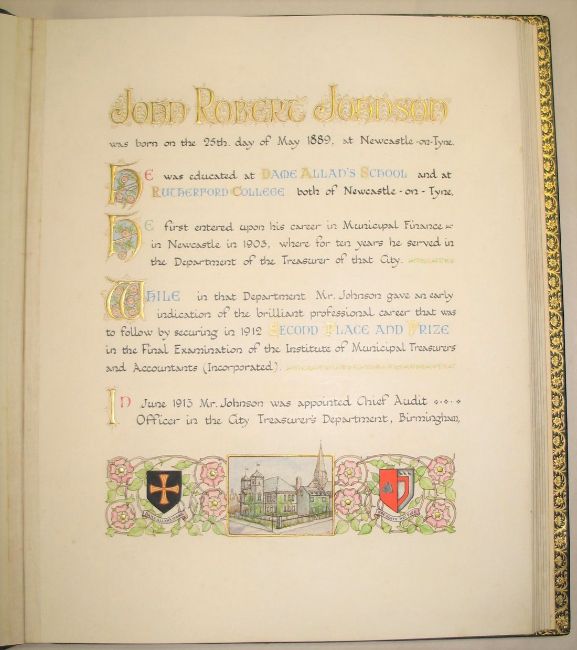 John Robert Johnson
was born on the 25th. day of May 1889, at Newcastle-on-Tyne.
He was educated at Dame Allan's School and at
Rutherford College both of Newcastle-on-Tyne.
He first entered upon his career in Municipal Finance
in Newcastle in 1903, where for ten years he served in
the Department of the Treasurer of that City.
While in that Department Mr. Johnson gave an early
indication of the brilliant professional career that was
to follow by securing in 1912 Second Place and Prize
in the Final Examination of the Institute of Municipal Treasurers
and Accountants (Incorporated).
In June 1913 Mr. Johnson was appointed Chief Audit
Officer in the City Treasurer's Department, Birmingham,